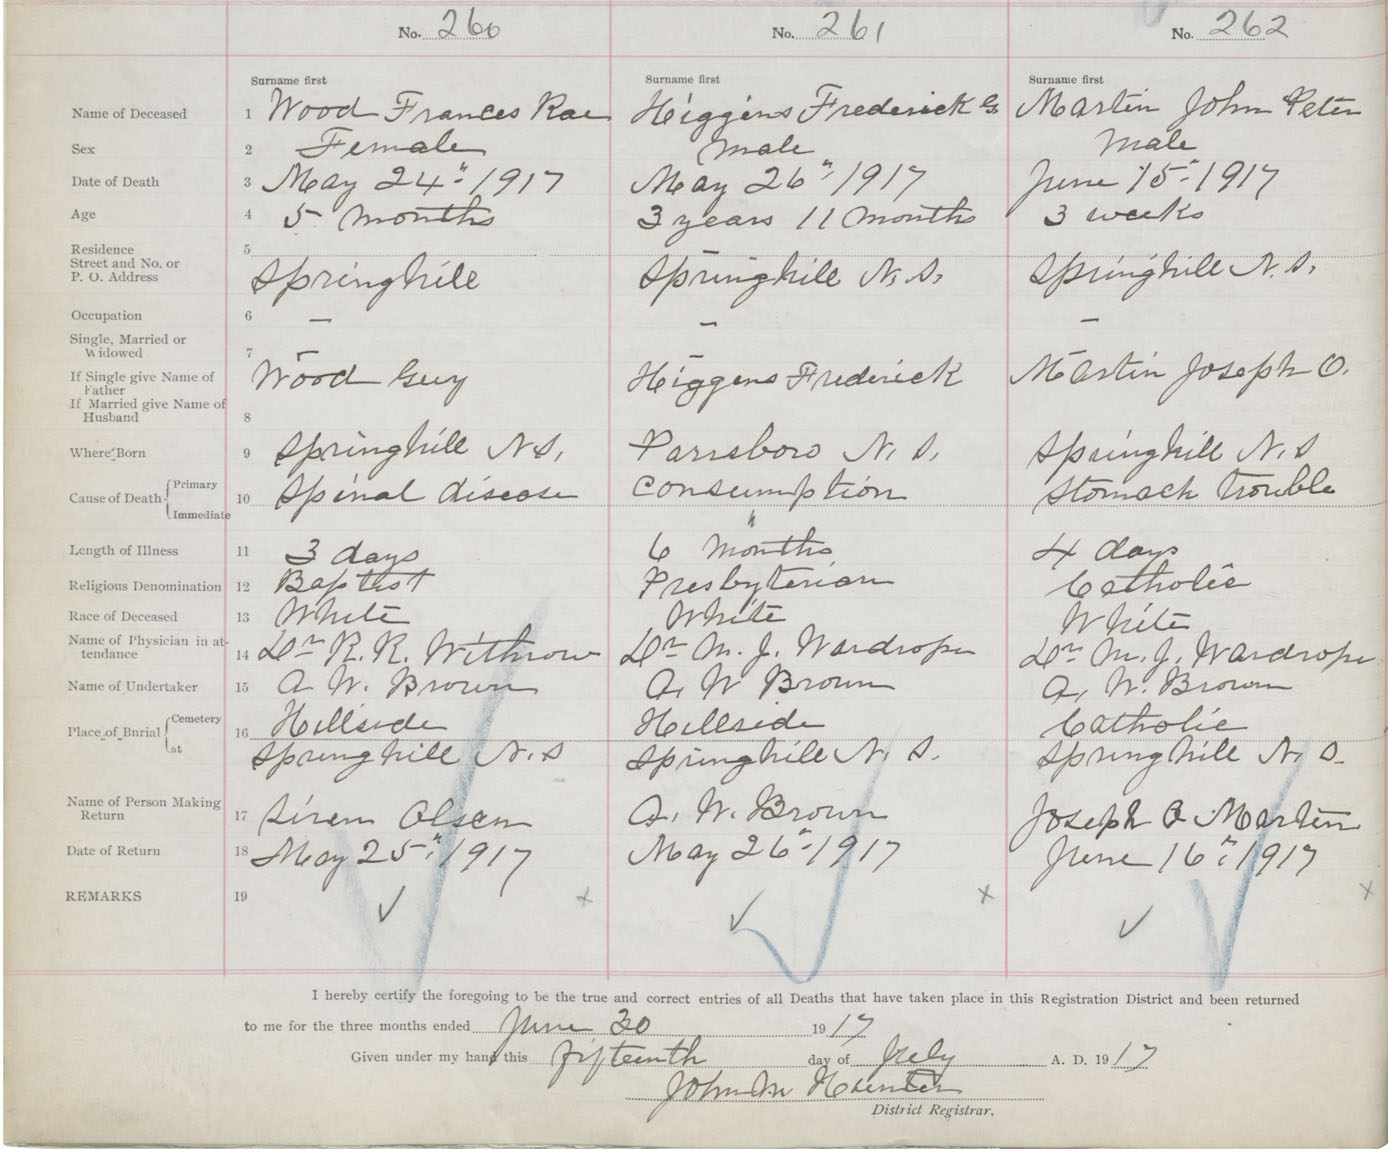 No. 260 No. 261 No. 262
Surname first Surname first Surname first
Name of Deceased 1 Wood Frances Rae Higgins Frederick G Martin John Peter
Sex 2 Female Male Male
Date of Death 3 May 24" 1917 May 26" 1917 June 15" 1917
Age 4 5 months 3 years 11 months 3 weeks
Residence 5
Street and No. or
P. O. Address Springhill Springhill N. S. Springhill N. S.
Occupation 6 — — —
Single, Married or
Widowed 7 — — —
If Single give Name of Wood Guy Higgens Frederick Martin Joseph O.
Father
If Married give Name of
Husband 8
Where Born 9 Springhill N.S. Parrsboro N. S. Springhill N. S
Primary
Cause of Death 10 Spinal disease Consumption Stomach trouble
Immediate "
Length of Illness 11 3 days 6 months 4 days
Religious Denomination 12 Baptist Presbyterian Catholic
Race of Deceased 13 White White White
Name of Physician in at-
tendance 14 Dr R. R. Withrow Dr M. J. Wardrope Dr M. J. Wardrope
Name of Undertaker 15 A W. Brown A. W Brown A. W. Brown
Cemetery
Place of Burial 16 Hillside Hillside Catholic
at Springhill N. S Springhill N. S. Springhill N. S.
Name of Person Making
Return 17 Siren Olsen A. W. Brown Joseph O Martin
Date of Return 18 May 25" 1917 May 26" 1917 June 16" 1917
REMARKS 19
I hereby certify the foregoing to be the true and correct entries of all Deaths that have taken place in this Registration District and been returned
to me for the three months ended June 30 1917
Given under my hand this fifteenth day of July A. D. 1917
John Hunter
District Registrar.